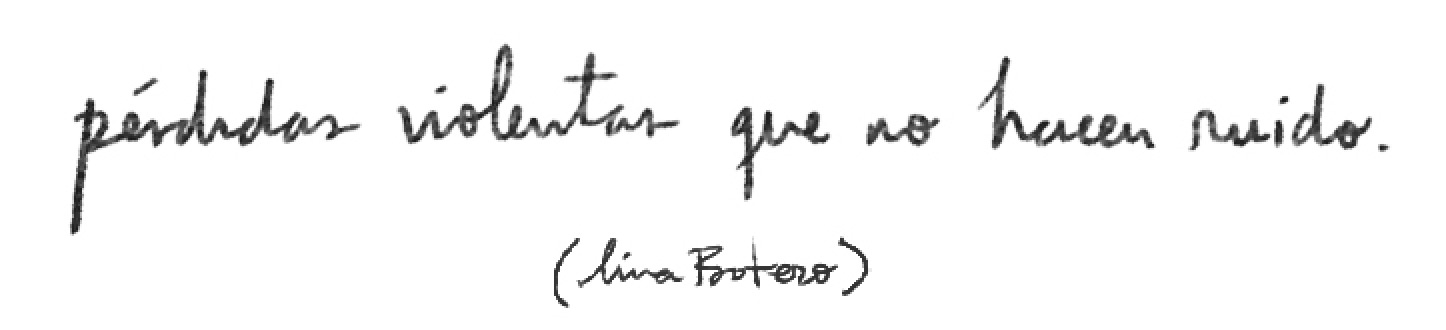 pérdidas violentas que no hacen ruido.
(lina Botero)